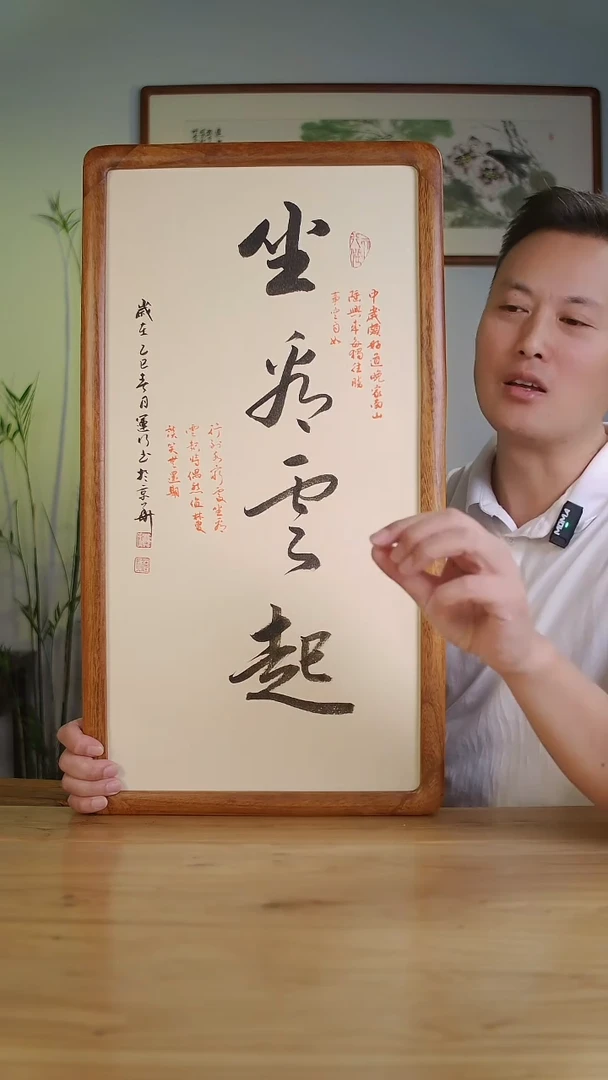 坐看雲起
中歲頗好道晚家南山
陲興來每獨往勝
事空自知
行到水窮處坐看
雲起時偶然值林叟
談笑無還期
歲在乙巳春月運書於京華
MOMA